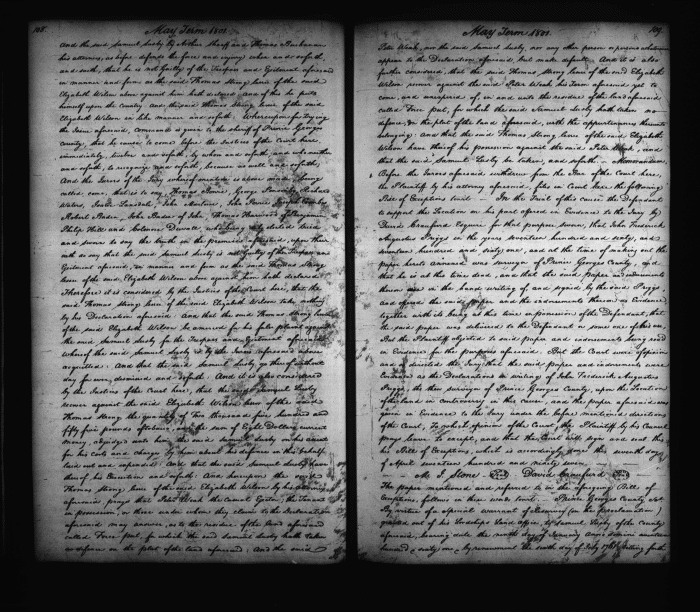 108. May Term 1801.
And the said Samuel Lusby by Arthur Shaaff and Thomas Buchanan
his attorneys, as before defends the force and injury when and so forth,
and saith, that he is not Guilty of the Trespass and Ejectment aforesaid
in manner and form as the said Thomas Strong lessee of the said
Elizabeth Wilson above against him hath declared. And of this he puts
himself upon the country. And the said Thomas Strong lessee of the said
Elizabeth Wilson in like manner and soforth. Whereupon for trying
the Issue aforesaid, command is given to the sheriff of Prince Georges
county, that he cause to come before the Justices of the Court here,
immediately, twelve and soforth, by whom and soforth, and who neither
and soforth, to recognize and soforth, because as well and soforth,
And the Jurors of the Jury whereof mention is above made being
called come, that is to say, Thomas
Waters, Isaac Lansdale, John
Robert Bader, John Bader of John, Thomas Harwood of Benjamin
Philip Hill and who being duly elected tried
and sworn to say the truth in the premises aforesaid, upon their
oath do say that the said Samuel Lusby is not guilty of the Trespass and
Ejectment aforesaid, in manner and form as the said Thomas Strong lessee
of the said Elizabeth Wilson above against him hath declared
Therefore it is considered by the Justices of the Court here, that the
said Thomas Strong lessee of the said Elizabeth Wilson take nothing
by his Declaration aforesaid. And that the said Thomas Strong lessee
of the said Elizabeth Wilson be amerced for his false plaint against
the said Samuel Lusby for the Trespass and Ejectment aforesaid
whereof the said Samuel Lusby is by the Jurors aforesaid above
acquitted. And that the said Samuel Lusby go thereof without
day for ever, dismissed and soforth. And it is also considered
by the Justices of the Court here, that the said Samuel Lusby
recover against the said Elizabeth Wilson lessor of the said
Thomas Strong the quantity of Two thousand five hundred and
fifty five pounds of tobacco, and the sum of Eight Dollars current
money, adjudged unto him the said Samuel Lusby on his assent
for his costs and charges by him about his defence in this behalf
laid out and expended. And that the said Samuel Lusby have
thereof his Execution and soforth. And thereupon the said
Thomas Strong lessee of the said Elizabeth Wilson by his attorney
aforesaid prays that Peter Wink the Casual Ejector, the Tenant
in possession, or those under whom they claim to the Declaration
aforesaid may answer, as to the residue of the land aforesaid
called Fores pool, for which the said Samuel Lusby hath taken
no defence on the plot of the land aforesaid: And the said
May Term 1801. 109.
Peter Wink, nor the said Samuel Lusby, nor any other person or persons whatsoever
appear to the Declaration aforesaid, but make default. And it is also
further considered, that the said Thomas Strong lessee of the said Elizabeth
Wilson recover against the said Peter Wink his Term aforesaid yet to
come and unexpired of in and unto the residue of the land aforesaid
called Fores pool, for which the said Samuel Lusby hath taken no
defence, on the plot of the land aforesaid, with the appurtenances thereunto
belonging: And that the said Thomas Strong lessee of the said Elizabeth
Wilson have thereof his possession against the said Peter Wink, and
that the said Samuel Lusby be taken, and soforth. Memorandum,
Before the Jurors aforesaid withdrew from the Bar of the Court here,
the Plaintiff by his attorney aforesaid, files in Court here the following
Bill of Exceptions to wit. In the trial of this cause the Defendant
to support the Location on his part offered in Evidence to the Jury by
David Craufurd Esquire for that purpose sworn, that John Frederick
Augustus Priggs in the years seventeen hundred and sixty, and
seventeen hundred and sixty one, and at the time of making out the
paper hereto annexed, was surveyor of Prince Georges County, and
that he is at this time dead, and that the said paper and indorsements
thereon was in the hand writing of and signed by the said Priggs
and offered the said paper and the indorsements thereon as Evidence
together with its being at this time in possession of the Defendant, that
the said paper was delivered to the Defendant or some one of his son,
But the Plaintiff objected to said paper and indorsements being read
in Evidence for the purposes aforesaid. But the Court were of opinion
and so directed the Jury, that the said paper and indorsements were
the Declarations in writing of John Frederick Augustus
Priggs, the then surveyor of Prince Georges County, upon the Location
of the land in controversy in this cause, and the paper aforesaid was
given in Evidence to the Jury under the before mentioned directions
of the Court, To which opinion of the Court, the Plaintiff by his Counsel
prays leave to except, and that the Court will sign and seal this
his Bill of Exceptions, which is accordingly done this seventh day
of April seventeen hundred and ninety seven.
M. J. Stone Seal David Craufurd Seal
The paper mentioned and referred to in the foregoing Bill of
Exceptions, follows in these words to wit. Prince Georges County Sct.
By virtue of a special warrant of Resurvey (on the proclamation)
granted out of his Lordships Land office, to Samuel Lusby of the County
aforesaid, bearing date the ninth day of January anno domini seventeen
hundred sixty one by renewment the tenth day of July 1761 setting forth